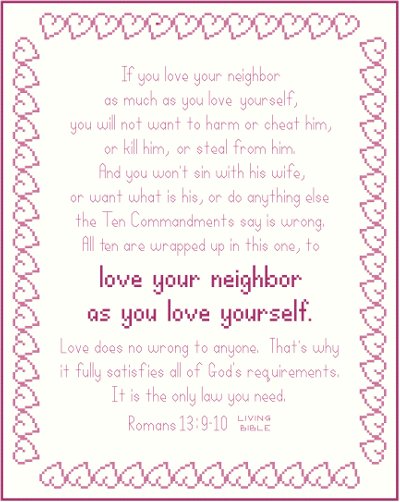 If you love your neighbor
as much as you love yourself,
you will not want to harm or cheat him,
or kill him, or steal from him.
And you won't sin with his wife,
or want what is his, or do anything else
the Ten Commandments say is wrong.
All ten are wrapped up in this one, to
love your neighbor
as you love yourself.
Love does no wrong to anyone. That's why
it fully satisfies all of God's requirements.
It is the only law you need.
Romans 13:9-10 LIVING BIBLE